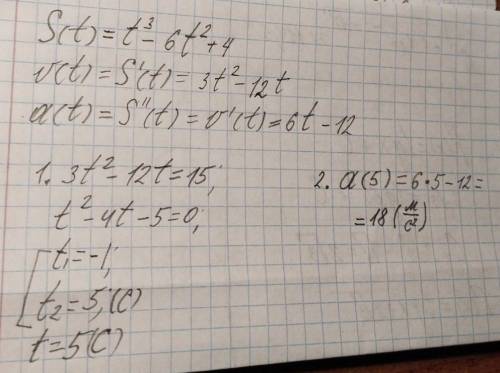 S(t) = t³ - 6t² + 4
v(t) = S'(t) = 3t² - 12t
a(t) = S''(t) = v'(t) = 6t - 12
1. 3t² - 12t = 15;
t² - 4t - 5 = 0;
[t₁ = -1;
t₂ = 5; (с)
t = 5 (с)
2. a(5) = 6·5 - 12 =
= 18 (м/с²)